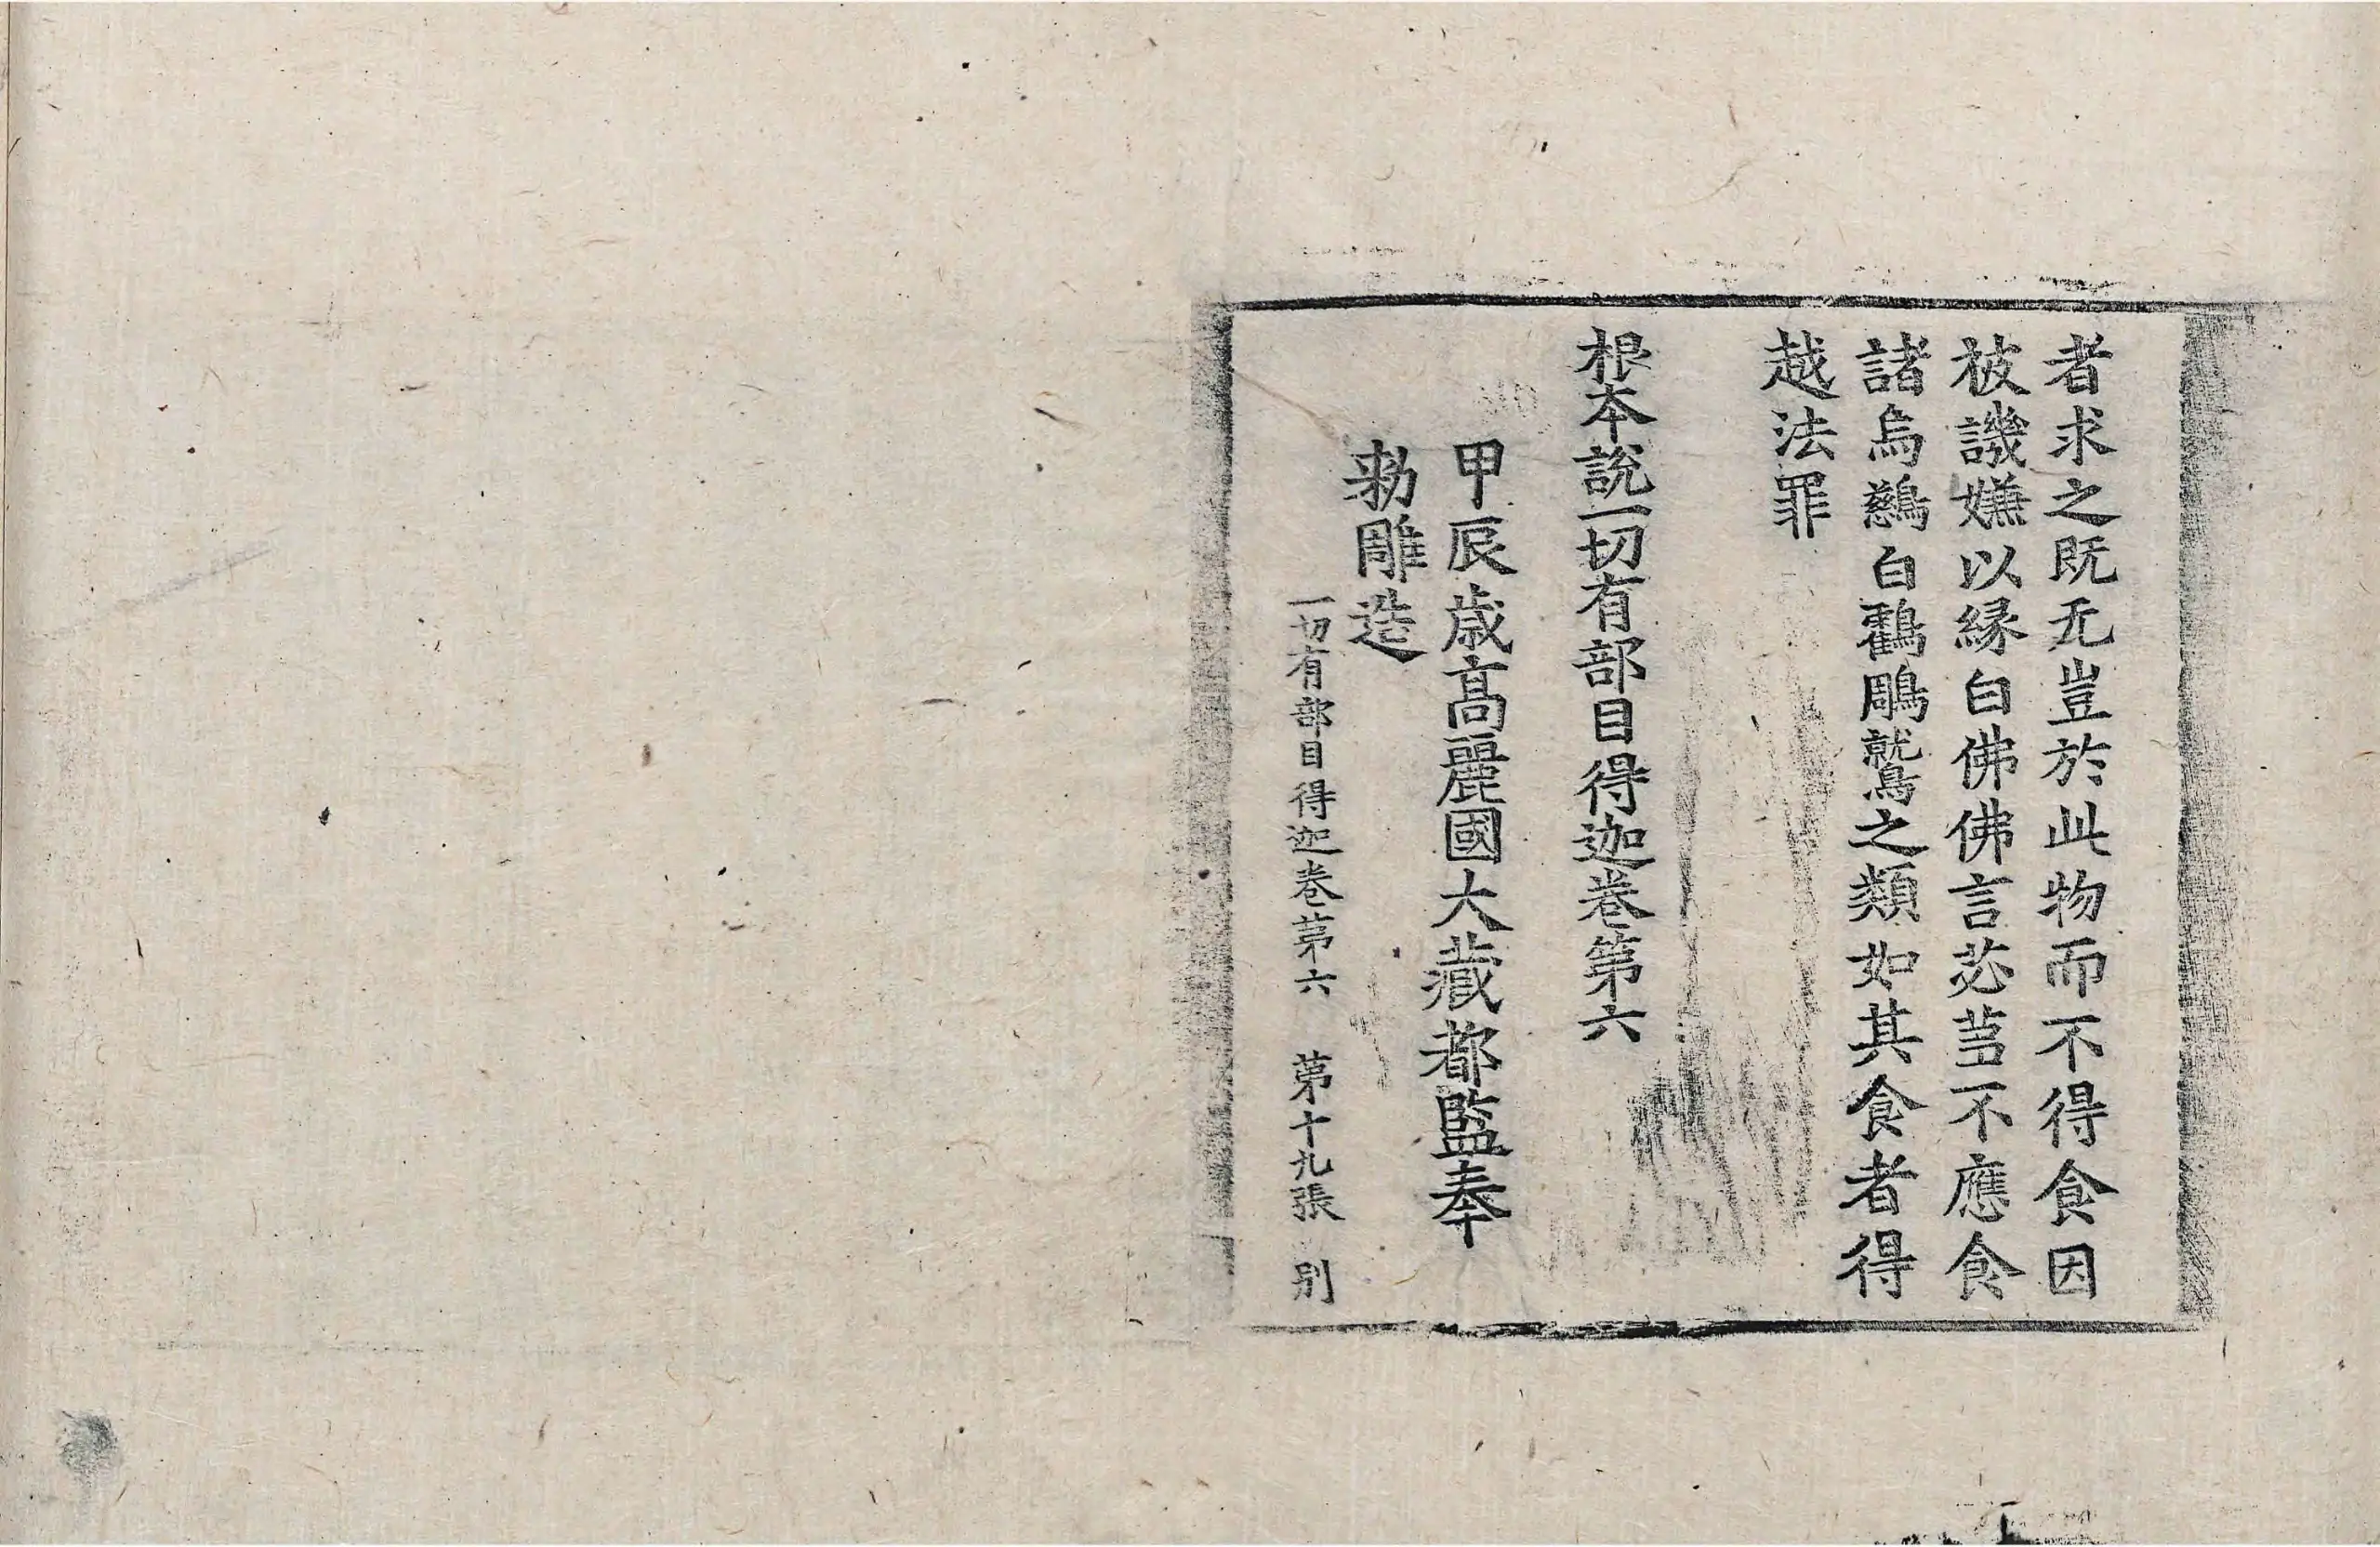 者求之既无豈於此物而不得食因
被譏嫌以縁白佛佛言苾芻不應食
諸烏鷀白鸖鵰鷲之類如其食者得
越法罪
根本說一切有部目得迦卷第六
甲辰歲高麗國大藏都監奉
勑雕造
一切有部目得迦卷苐六 苐十九張 別